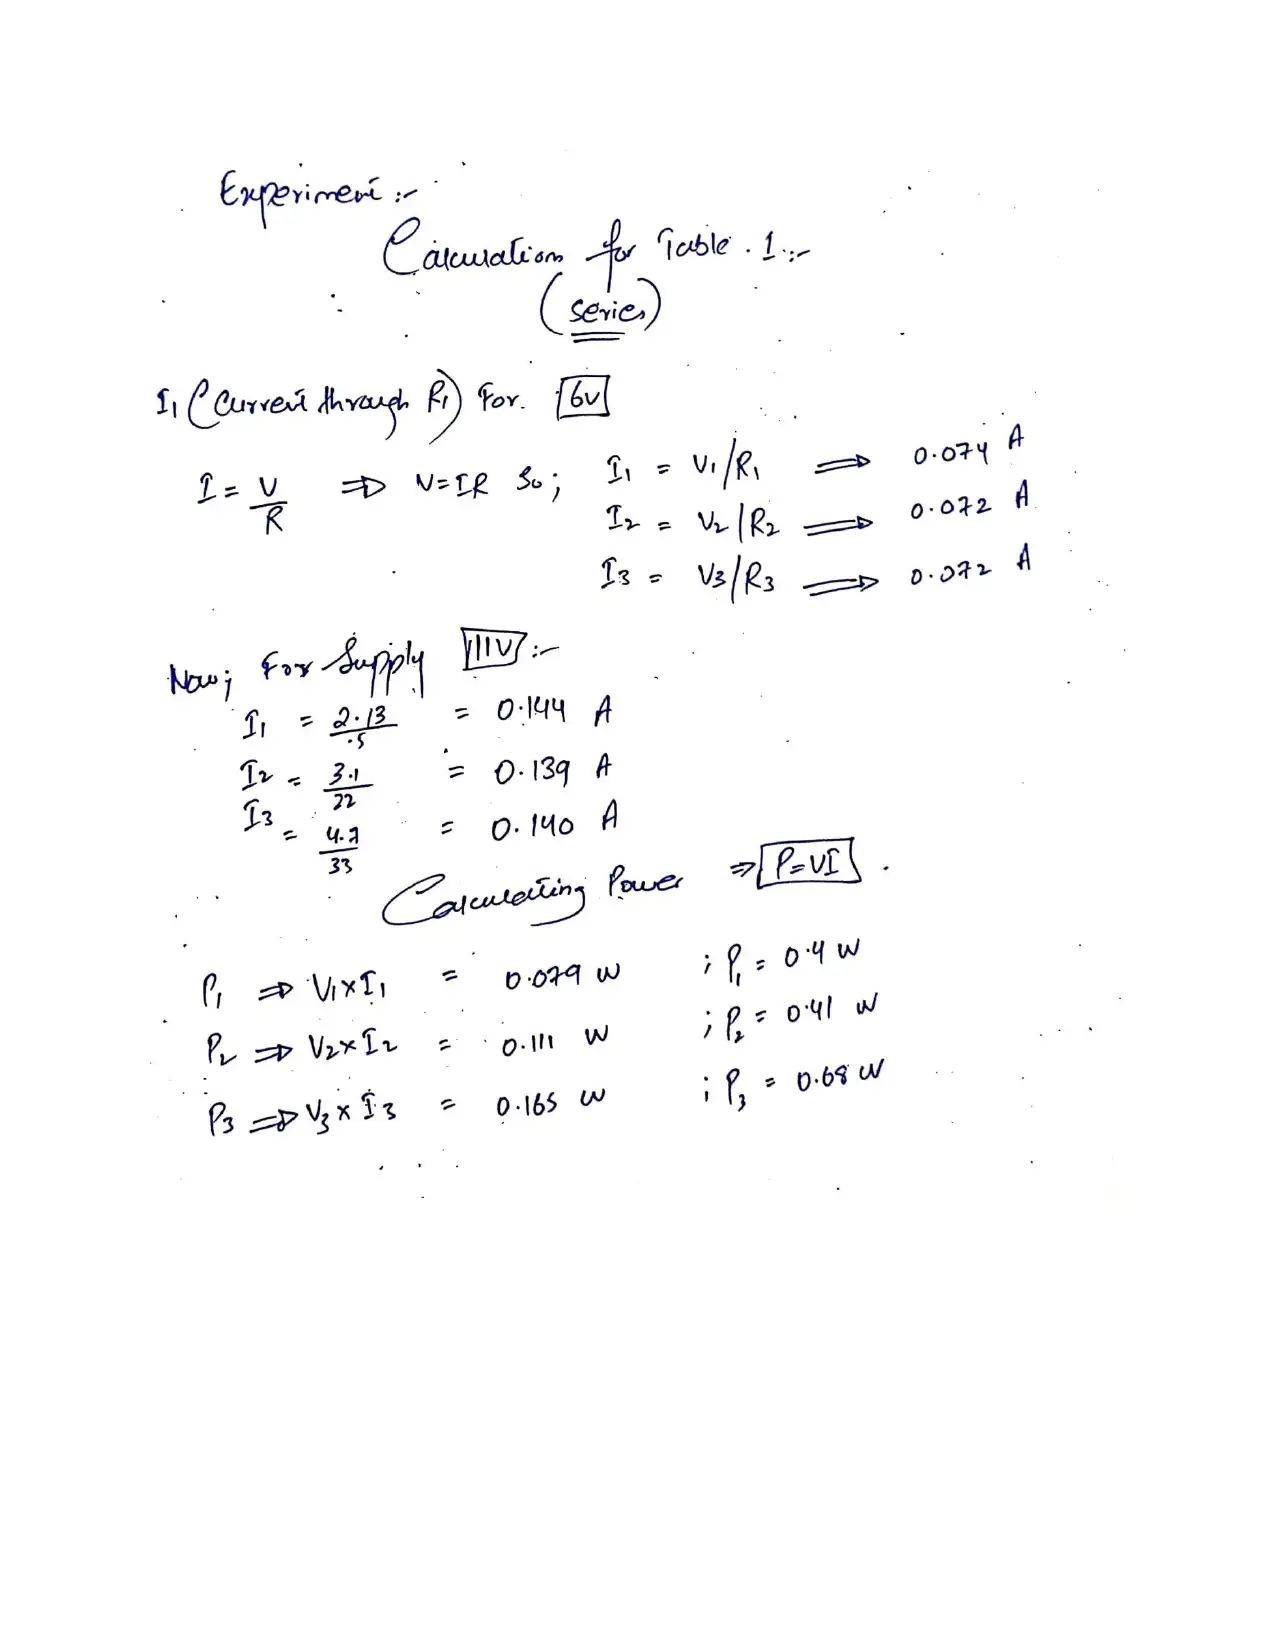 Experiment :-
Calculation for Table . 1 :-
(series)
I₁ (Current through R₁) For. 6V
I = V/R ⇒ V=IR So; I₁ = V₁/R₁ ⇒ 0.074 A
I₂ = V₂/R₂ ⇒ 0.072 A
I₃ = V₃/R₃ ⇒ 0.072 A
Now; For Supply 11V :-
I₁ = 2.13/.5 = 0.144 A
I₂ = 3.1/22 = 0.139 A
I₃ = 4.7/33 = 0.140 A
Calculating Power ⇒ P=VI .
P₁ ⇒ V₁×I₁ = 0.079 W ; P₁ = 0.4 W
P₂ ⇒ V₂×I₂ = 0.111 W ; P₂ = 0.41 W
P₃ ⇒ V₃×I₃ = 0.165 W ; P₃ = 0.68 W